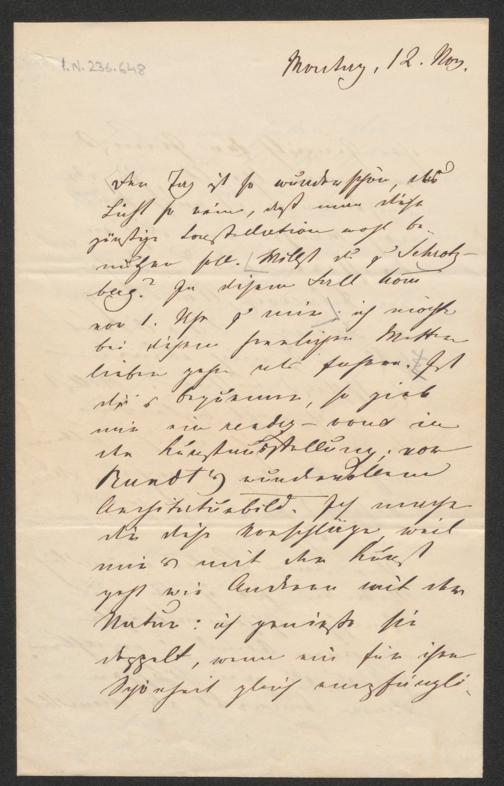 I.N. 236.648
Montag, 12. Nov.
Der Tag ist so wunderschön, das
Licht so rein, daß man diese
günstige Constellation wohl be-
nützen soll. Willst du z
In diesem Fall kom̄
vor 1. Uhr z mir: ich möchte
bei diesem herrlichen Wetter
lieber gehen als fahren. Ist
dir's bequemer, so gieb
mir ein rendez-vous in
der Kunstausstellung, vor
wundervollem
Architekturbild. Ich mache
dir diese Vorschläge, weil
mir's mit der Kunst
geht wie Anderen mit der
Natur: ich genieße sie
doppelt, wenn ein für ihre
Schönheit gleich empfängli-